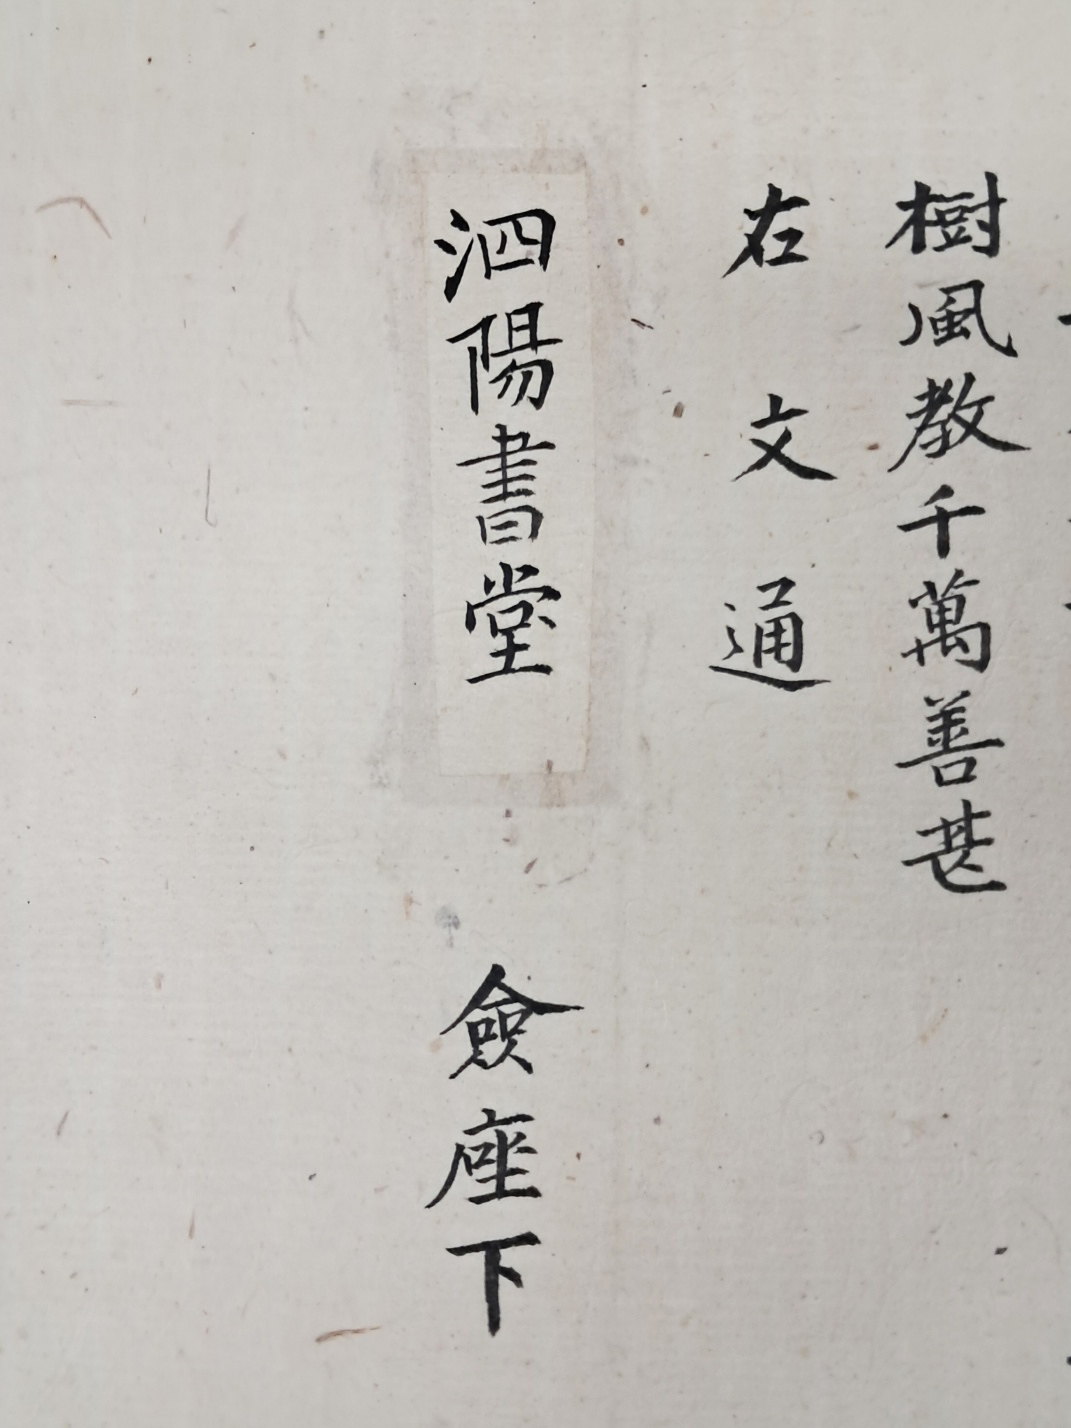 樹風教千萬善甚
右文通
泗陽書堂 僉座下